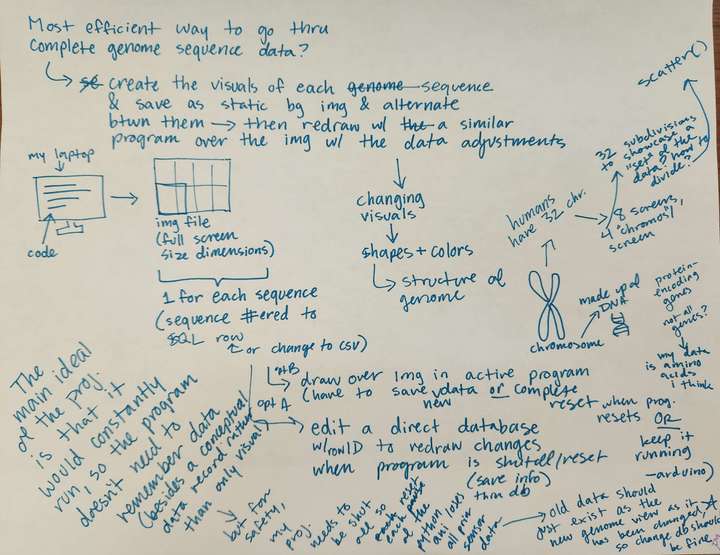 Most efficient way to go thru
complete genome sequence data?
create the visuals of each genome sequence
& save as static bg img & alternate
btwn them → then redraw w/ the a similar
program over the img w/ the data adjustments
scatter()
32 subdivisions
to showcase a
"set" of the
data? how to
divide?
my laptop
code
img file
(full screen
size dimensions)
1 for each sequence
(sequence #ered to
SQL row
or change to CSV)
changing
visuals
shapes + colors
structure of
genome
humans
have 32 chr.
8 screens,
4 "chromos"/
screen
chromosome
made up of
DNA
protein-
encoding
genes
not all
genes?
my data
is amino
acids
i think
opt B
draw over img in active program
(have to save new data or complete
reset when prog.
resets OR
keep it
running
-arduino)
opt A
edit a direct database
w/ row ID to redraw changes
when program is shut off/reset
(save info)
thru db
The
main idea
of the proj.
is that it
would constantly
run, so the program
doesn't need to
remember data
(besides a conceptual
data record rather
than only visual)
but for
safety,
my
proj.
needs to
be shut
off so
each reset
each pause
of the
python
ani loses
all prior
sensor
data
old data should
just exist as the
new genome view as it
has been changed!
so change db should
be fine